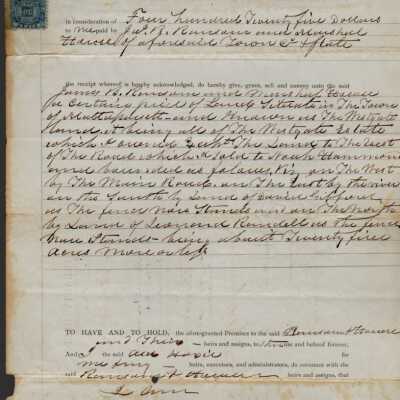 in consideration of Four hundred Twenty five Dollars
to me paid by Jas. B. Ransom and Marshal
of aforesaid Town & State
the receipt whereof is hereby acknowledged, do hereby give, grant, sell and convey unto the said
James B. Ransom and Marshal
a certain piece of Land Situate in The Town
of and Known as The Westgate
Land, it being all of The Westgate Estate
which I owned Except The Land to The East
of The Road which I sold to Noah Hammond
and bounded as follows, Viz on The West
by The Main Road, on The East by the river
on the South by Land of Gifford
as The fence Now Stands and on The North
by Land of Leonard Randall as the fence
Now Stands being about Twenty five
acres More or less
TO HAVE AND TO HOLD, the afore-granted Premises to the said Ransom &
and Their heirs and assigns, to their use and behoof forever.
And I the said for
me my heirs, executors, and administrators, do covenant with the
said Ransom & heirs and assigns, that
I am